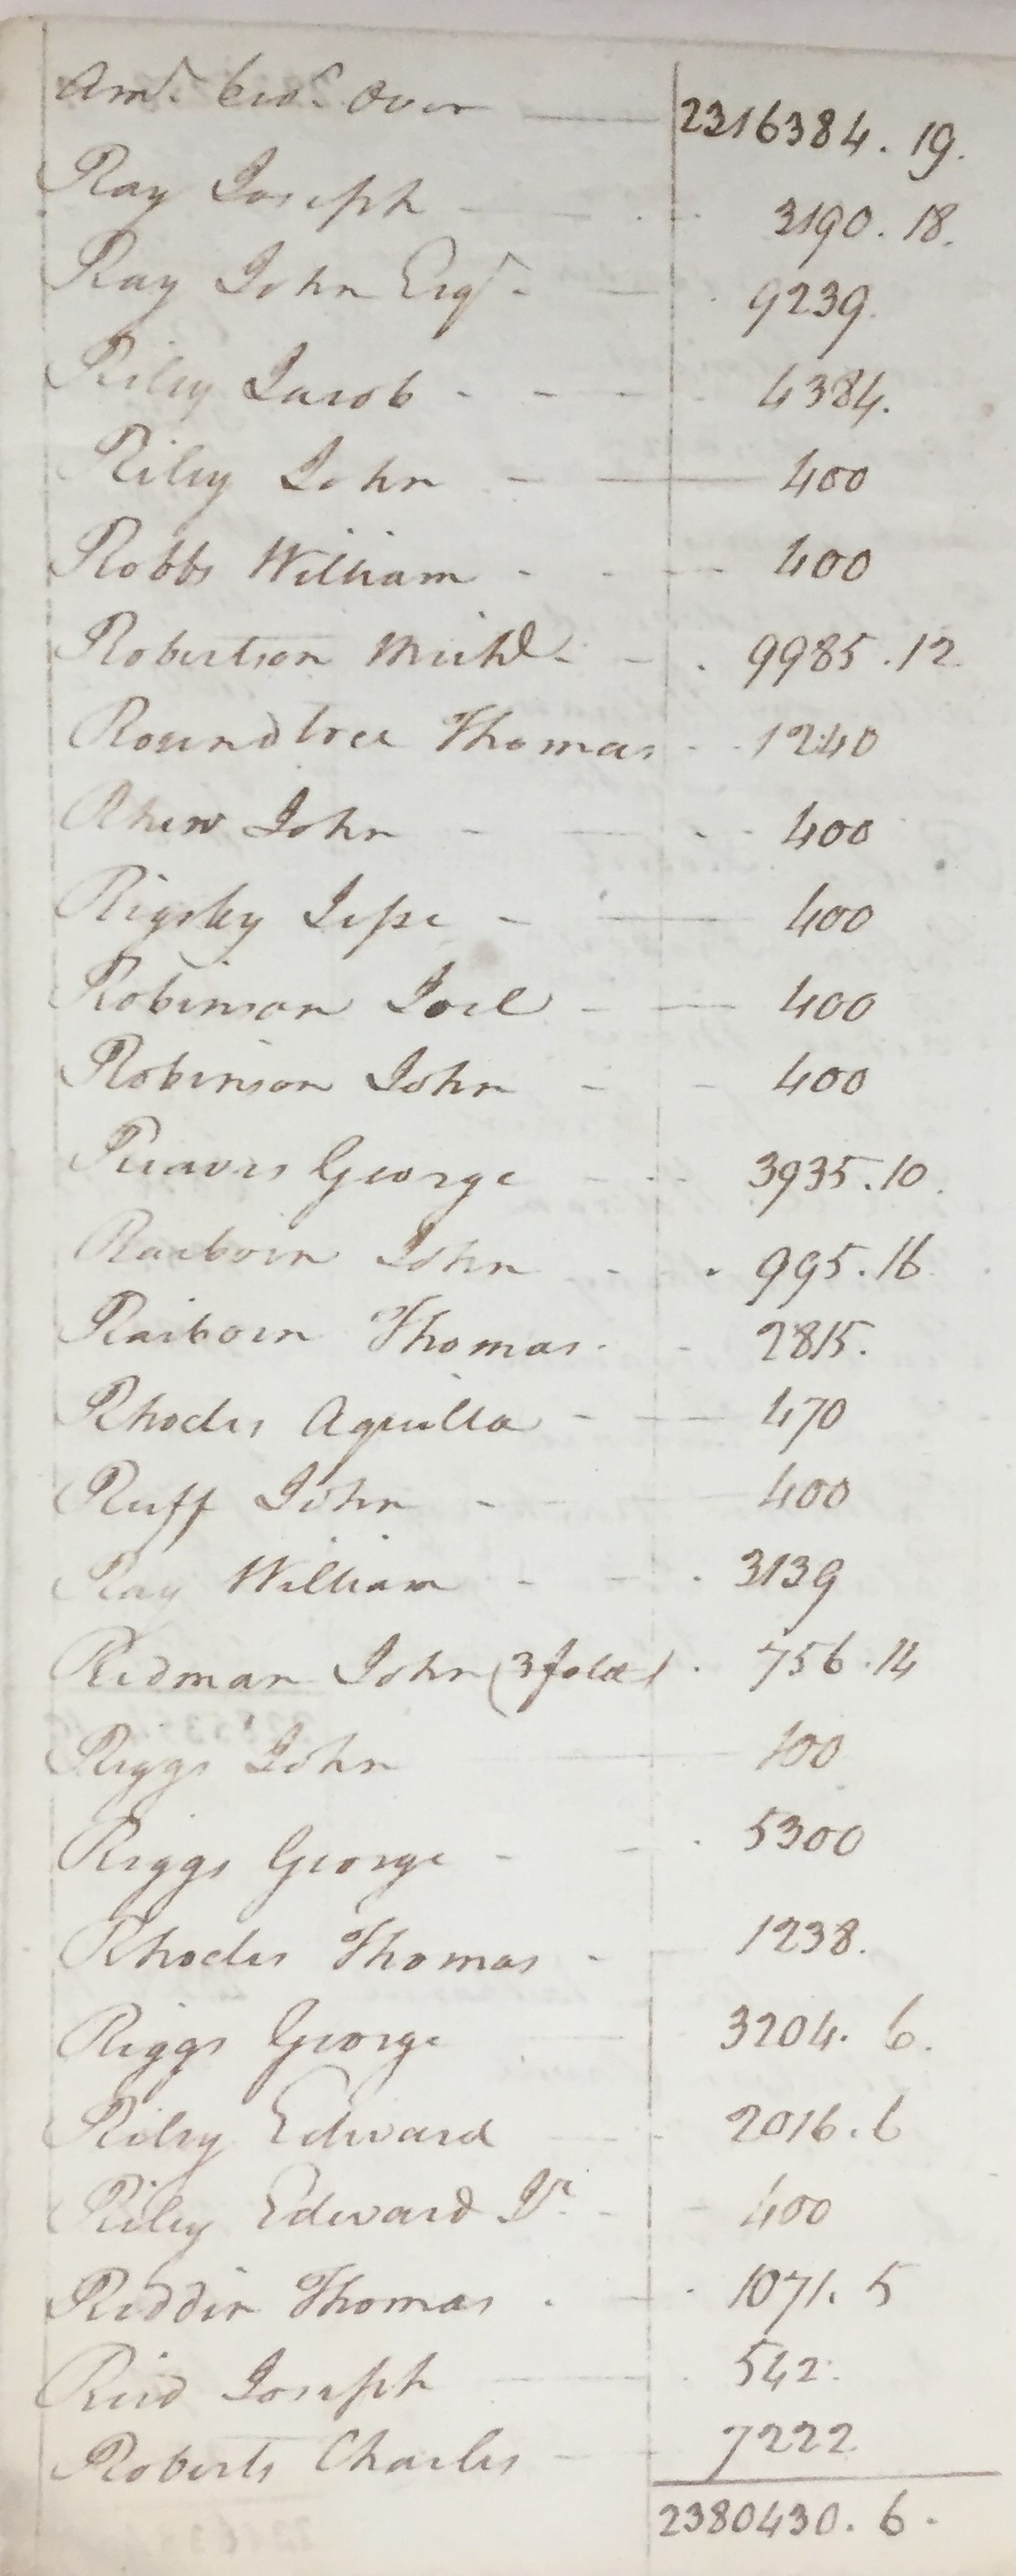 Amt. bro't Over 2316384. 19.
Ray Joseph 3190. 18.
Ray John Esqr. 9239.
Riley Jacob 4384.
Riley John 400
Robbs William 400
Robertson Michl. 9985. 12
Roundtree Thomas 1240
Rhew John 400
Rigsby Jesse 400
Robinson Joel 400
Robinson John 400
Reaves George 3935. 10.
Raiborn John 995. 16
Raiborn Thomas 2815.
Rhodes Aquilla 470
Ruff John 400
Ray William 3139
Redman John (3 fold) 756. 14
Riggs John 100
Riggs George 5300
Rhodes Thomas 1238.
Riggs George 3204. 6.
Riley Edward 2016. 6
Riley Edward Jr. 400
Reddin Thomas 1071. 5
Reid Joseph 542.
Roberts Charles 7222
2380430. 6.